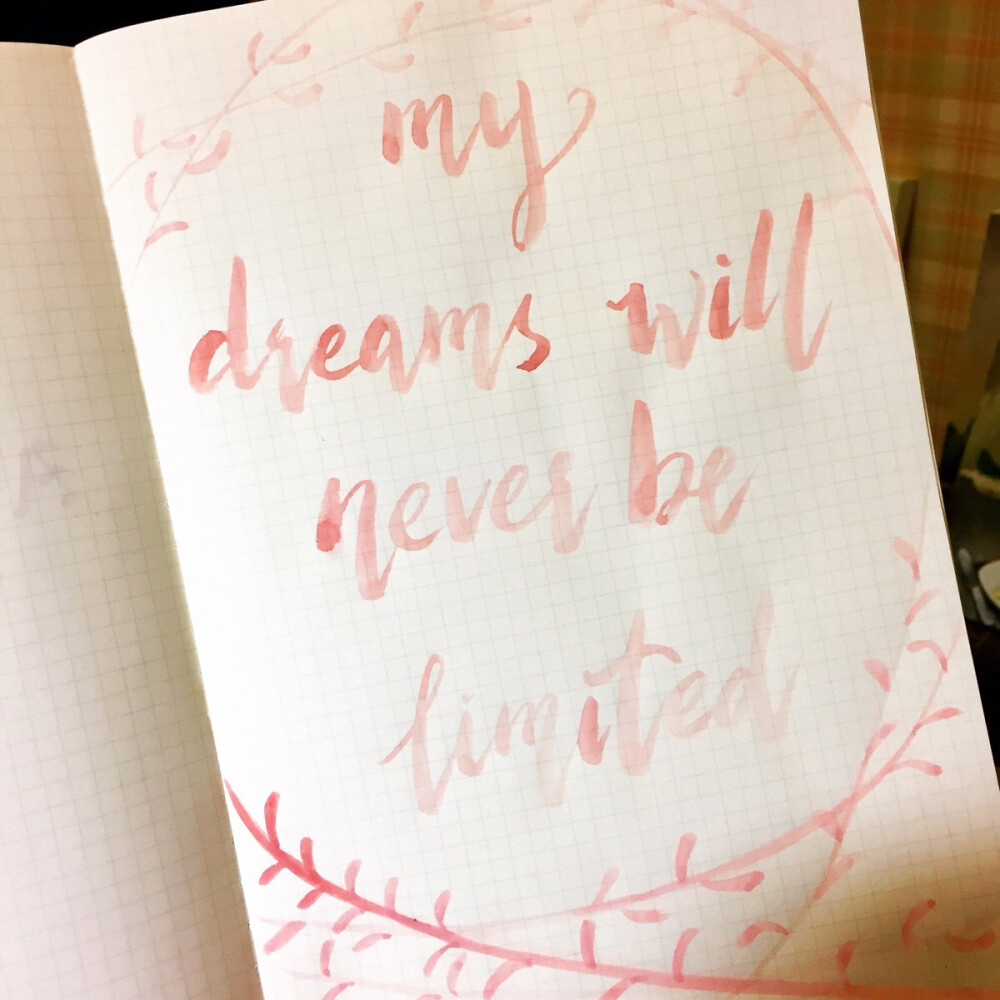 my
dreams will
never be
limited